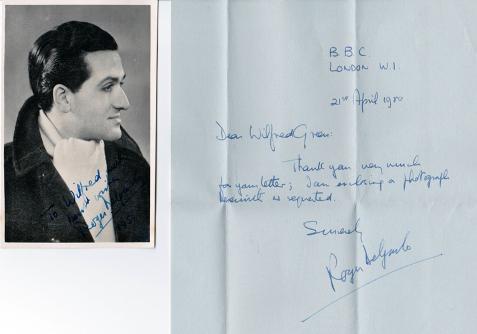 To Wilfred
Best wishes
Roger Delgado
B B C
LONDON W.1.
21st April 1950
Dear Wilfred Green:
Thank you very much
for your letter; I am enclosing a photograph
herewith as requested.
Sincerely
Roger Delgado